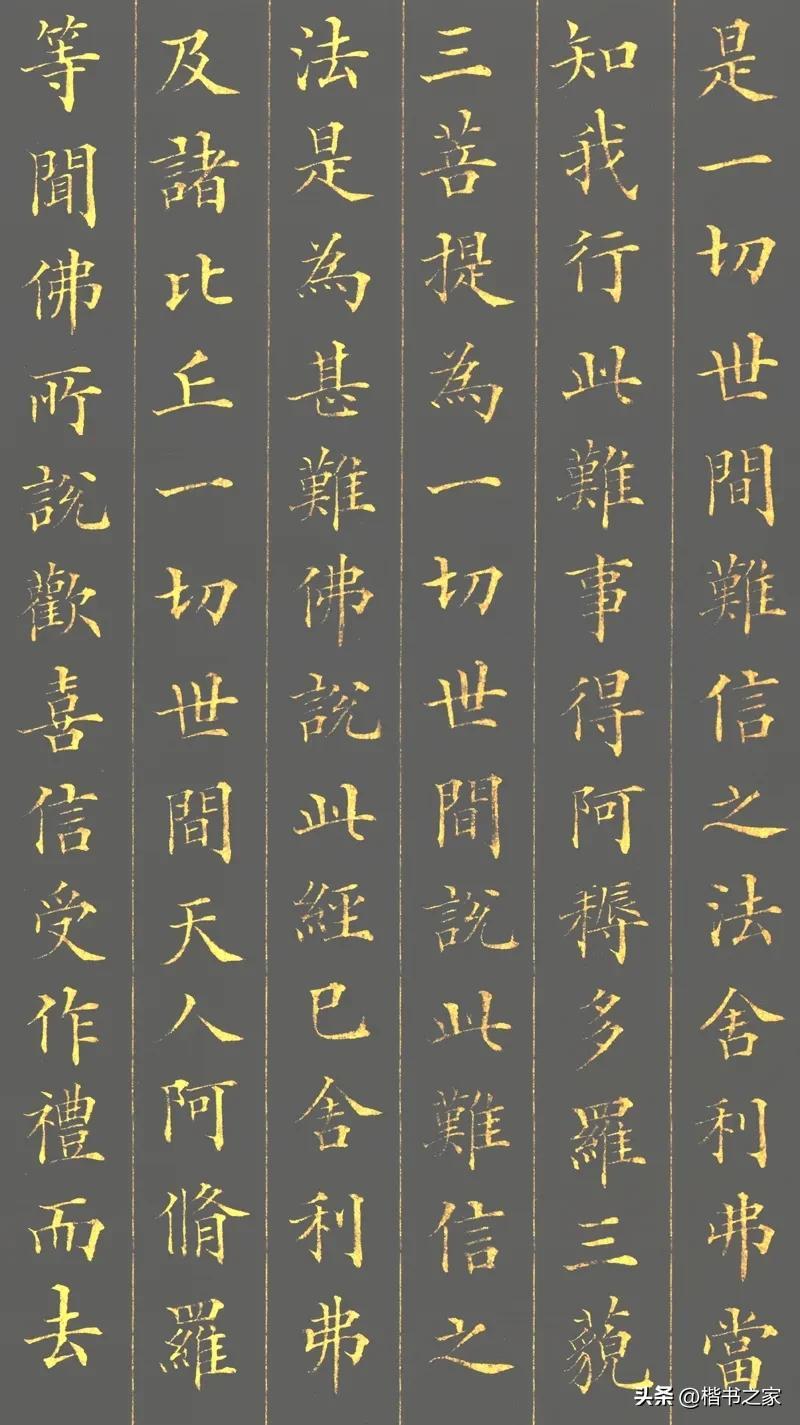 是一切世間難信之法舍利弗當
知我行此難事得阿耨多羅三藐
三菩提為一切世間說此難信之
法是為甚難佛說此經已舍利弗
及諸比丘一切世間天人阿脩羅
等聞佛所說歡喜信受作禮而去
头条 @楷书之家